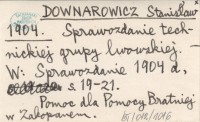 DOWNAROWICZ Stanisław
1904. Sprawozdanie tech-
nickiej grupy lwowskiej. -
W: Sprawozdanie 1904 d,
s. 19-21.
Pomoc dla Pomocy Bratniej
w Zakopanem.